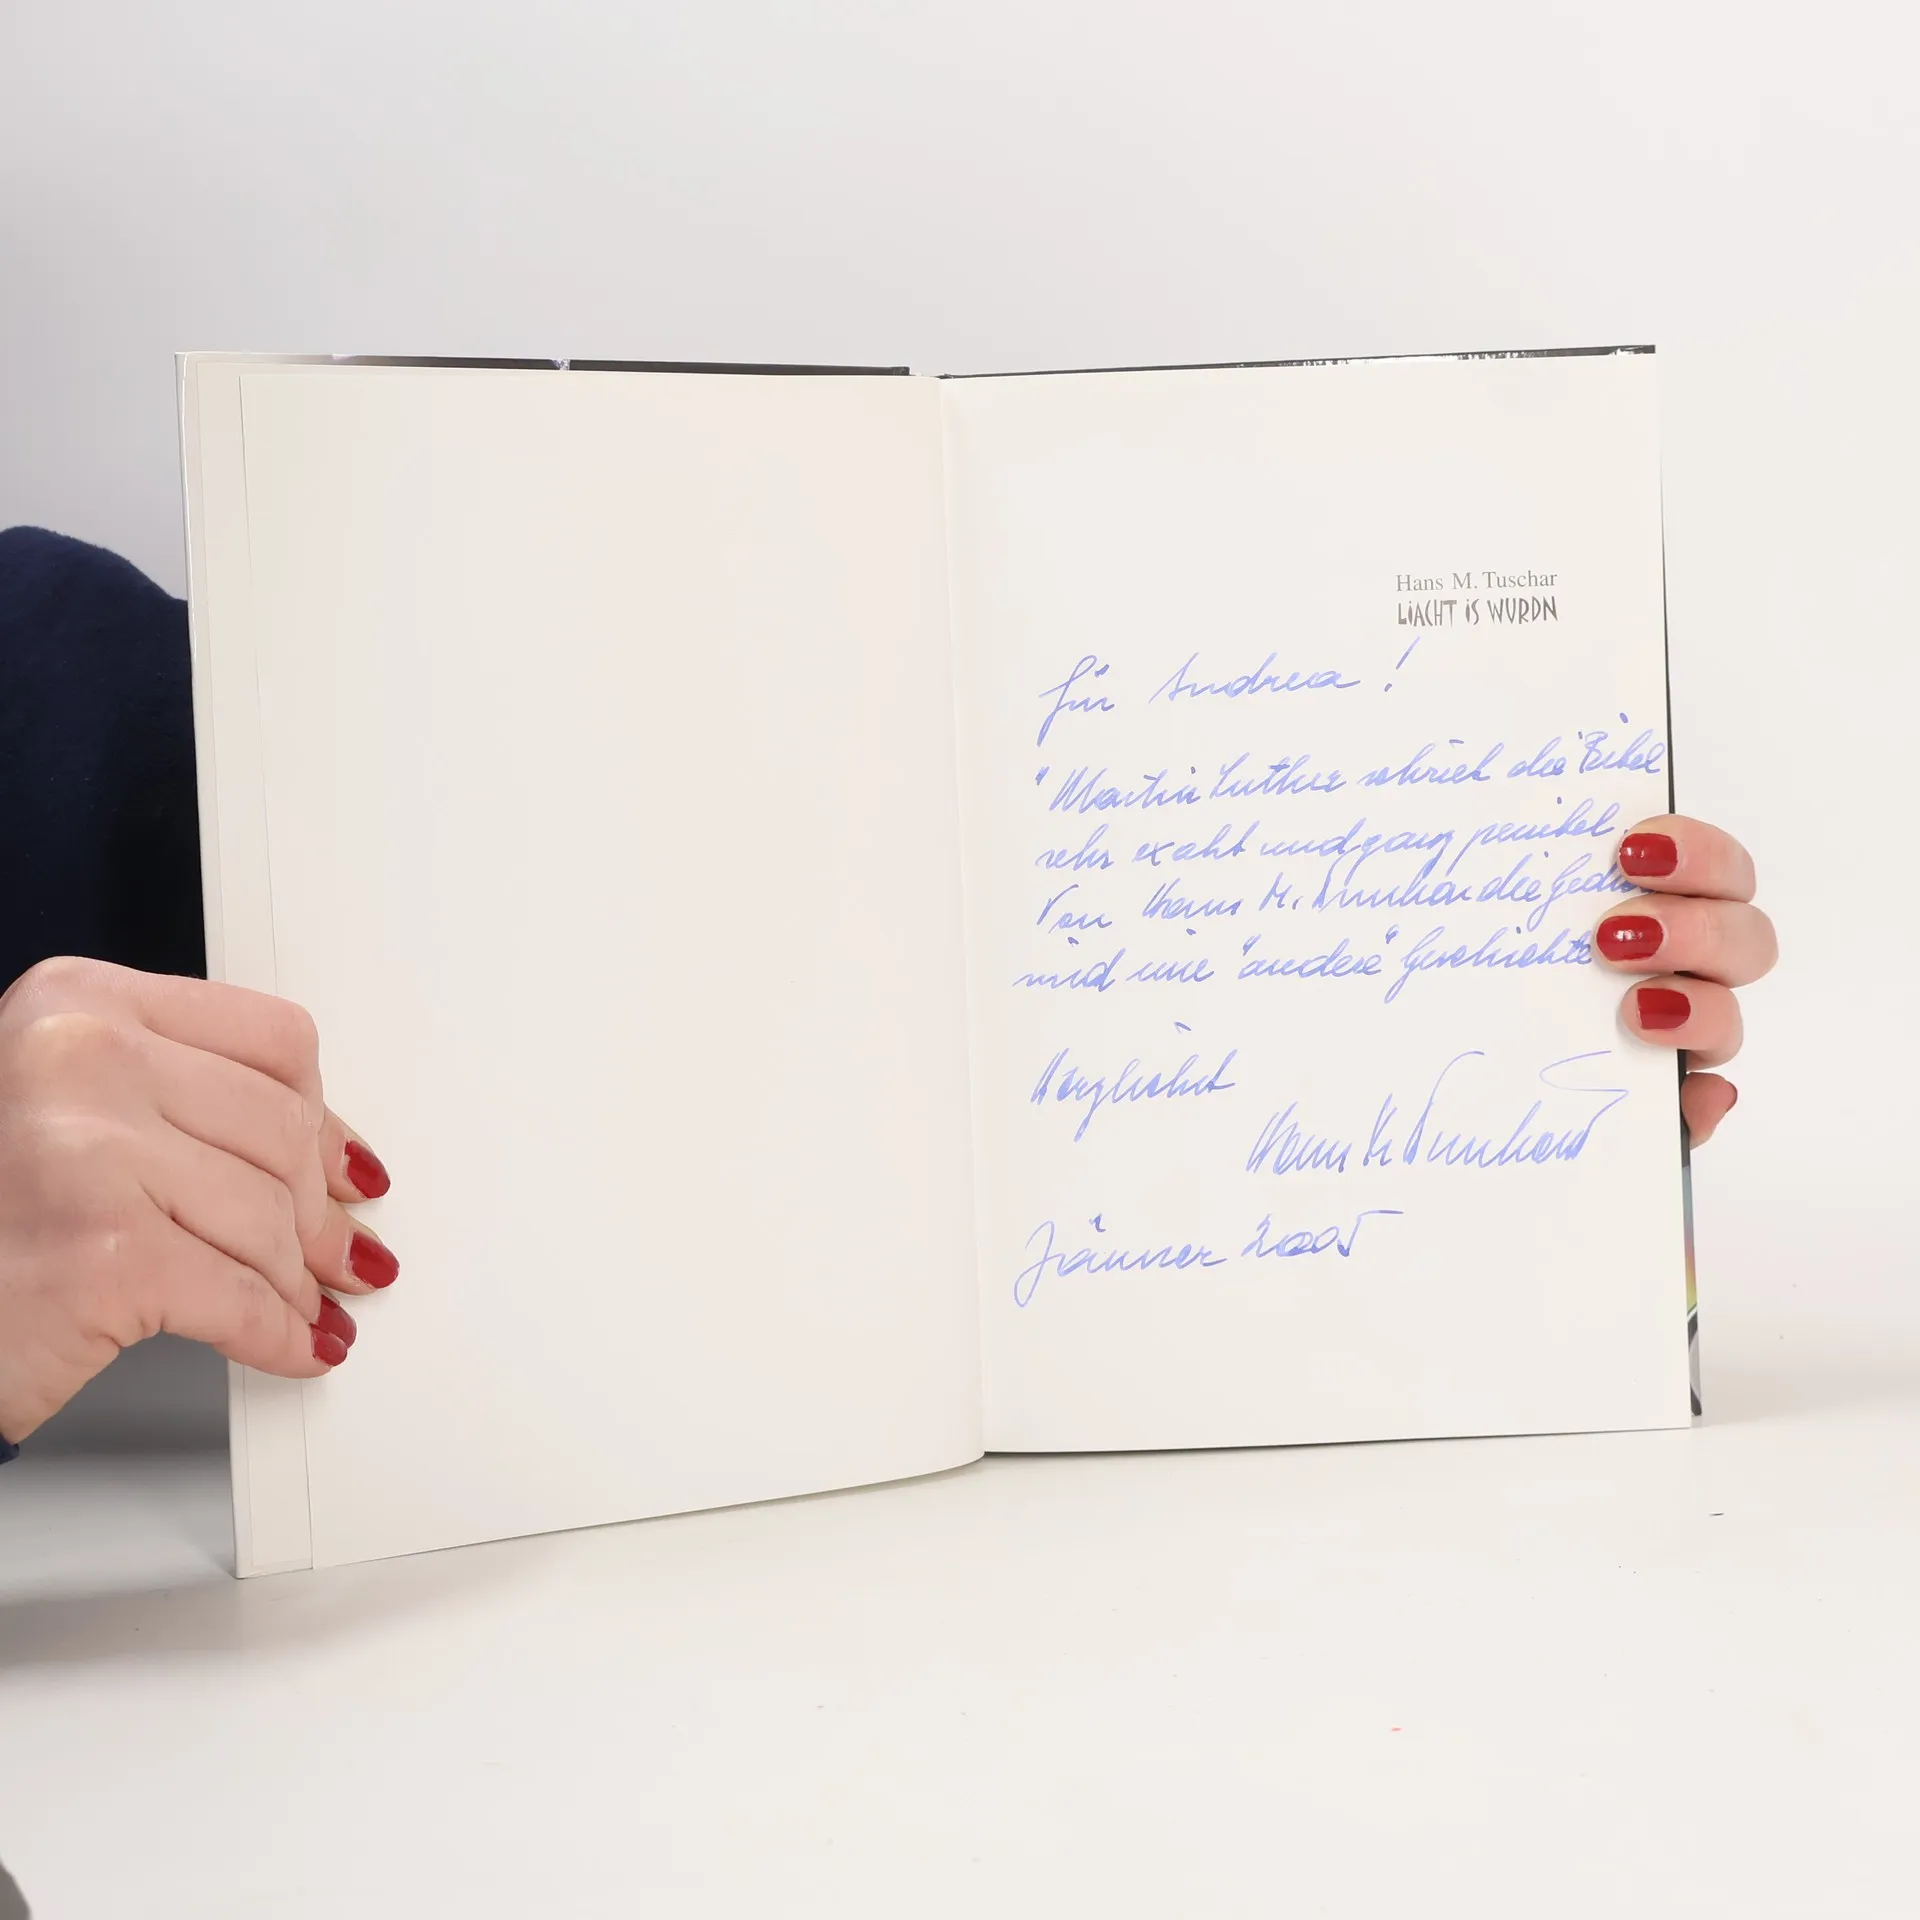 Hans M. Tuschar
LIACHT IS WURDN
für Andrea!
"Martin Luther schrieb die Bibel
sehr exakt und ganz penibel.
Von Hans M. Tuschar die
sind eine "andere" Geschichte
Herzlichst
Hans M Tuschar
Jänner 2005